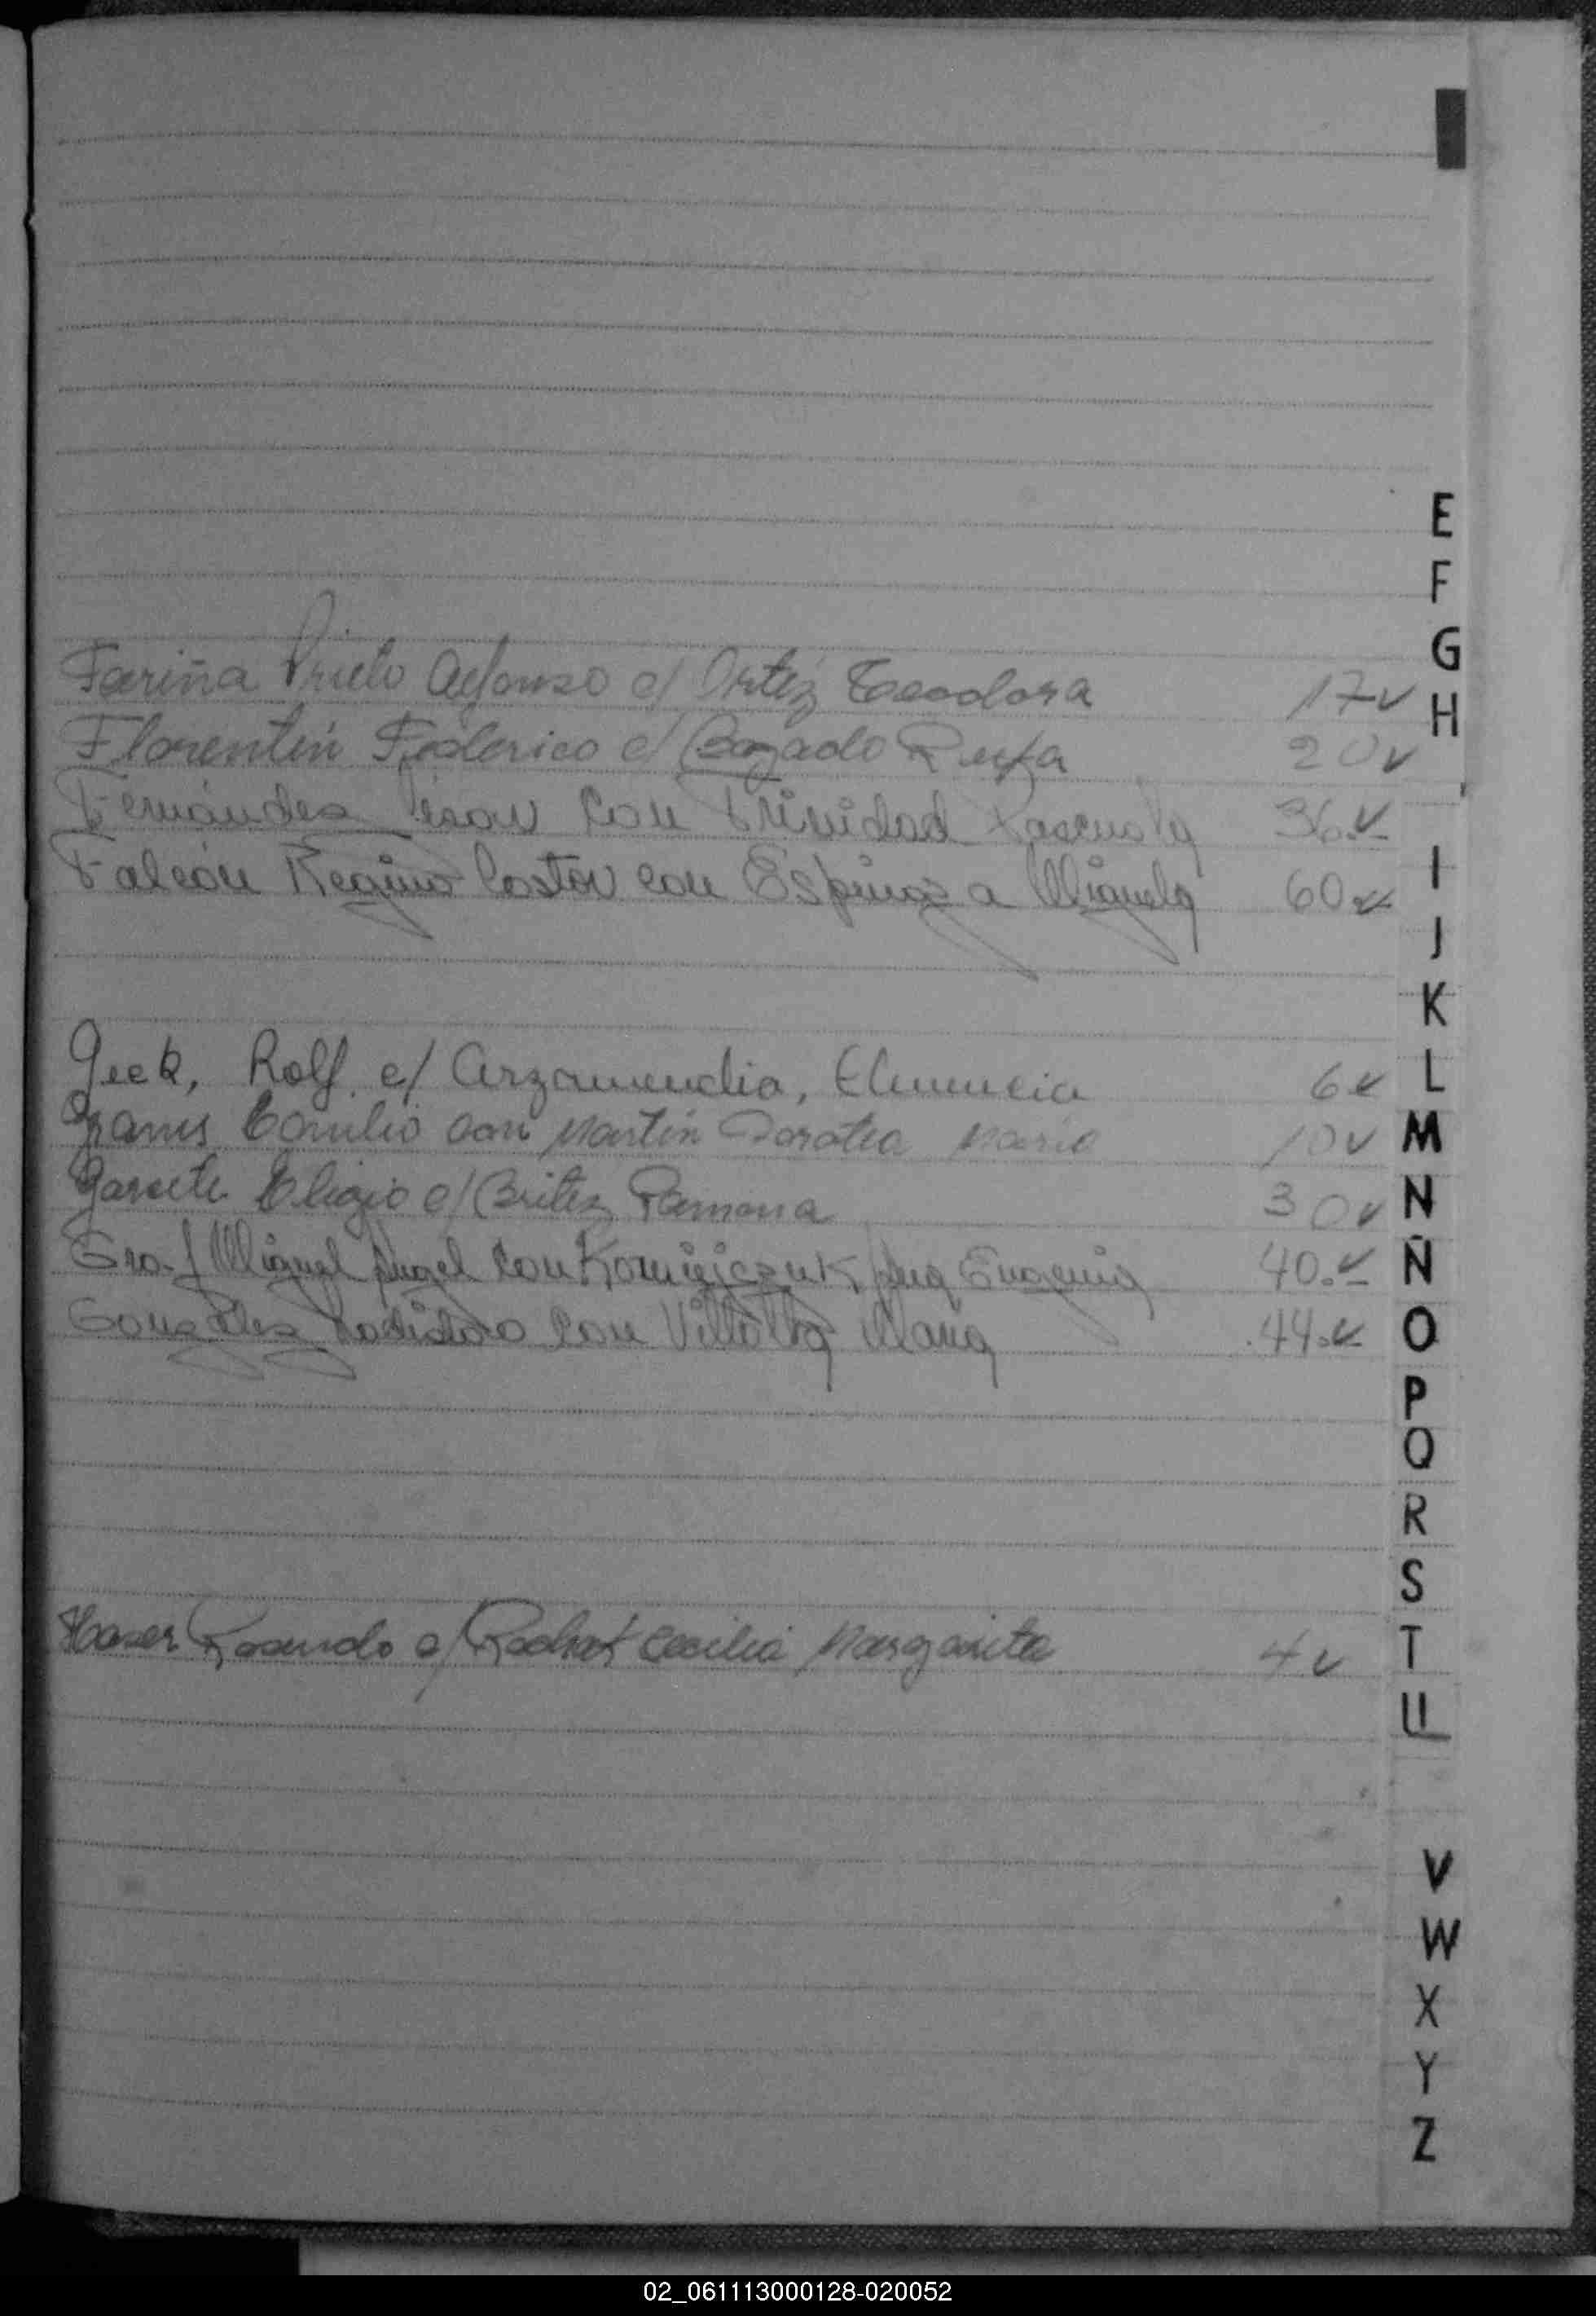 E
F
G
Fariña Prieto Alfonso c/ Ortíz Teodora 17v
H
Florentín Federico c/ Bozado Rufa 20v
Fernández con Trinidad Pascuala 36.v
Falcón Regino Castor con Espinoza Miguela 60.v
I
J
K
Geek, Rolf c/ Arzamendia, Clemencia 6v
L
Emilio con Martín Dorotea María 10v
M
Garcete Eligio c/ Britez Ramona 30v
N
Graf Miguel Angel con Korniejczuk Ana Eugenia 40.v
Ñ
González con Villalba María 44.v
O
P
Q
R
S
Rosendo c/ Cecilia Margarita 4v
T
U
V
W
X
Y
Z
02_061113000128-020052